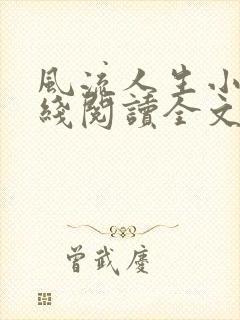 風流人生小
綫閱讀全文
曾武慶